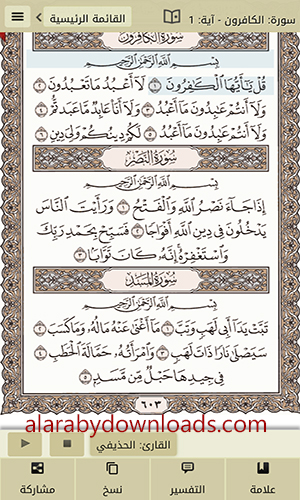 سورة: الكافرون - آية: 1
القائمة الرئيسية
سُورَةُ الكَافِرُونَ
بِسْمِ اللَّهِ الرَّحْمَٰنِ الرَّحِيمِ
قُلْ يَٰٓأَيُّهَا ٱلْكَٰفِرُونَ ١ لَآ أَعْبُدُ مَا تَعْبُدُونَ ٢
وَلَآ أَنتُمْ عَٰبِدُونَ مَآ أَعْبُدُ ٣ وَلَآ أَنَا۠ عَابِدٌ مَّا عَبَدتُّمْ ٤
وَلَآ أَنتُمْ عَٰبِدُونَ مَآ أَعْبُدُ ٥ لَكُمْ دِينُكُمْ وَلِىَ دِينِ ٦
سُورَةُ النَّصْرِ
بِسْمِ اللَّهِ الرَّحْمَٰنِ الرَّحِيمِ
إِذَا جَآءَ نَصْرُ ٱللَّهِ وَٱلْفَتْحُ ١ وَرَأَيْتَ ٱلنَّاسَ
يَدْخُلُونَ فِى دِينِ ٱللَّهِ أَفْوَاجًا ٢ فَسَبِّحْ بِحَمْدِ رَبِّكَ
وَٱسْتَغْفِرْهُ إِنَّهُۥ كَانَ تَوَّابًۢا ٣
سُورَةُ المَسَدِ
بِسْمِ اللَّهِ الرَّحْمَٰنِ الرَّحِيمِ
تَبَّتْ يَدَآ أَبِى لَهَبٍ وَتَبَّ ١ مَآ أَغْنَىٰ عَنْهُ مَالُهُۥ وَمَا كَسَبَ ٢
سَيَصْلَىٰ نَارًا ذَاتَ لَهَبٍ ٣ وَٱمْرَأَتُهُۥ حَمَّالَةَ ٱلْحَطَبِ ٤
فِى جِيدِهَا حَبْلٌ مِّن مَّسَدٍۭ ٥
٦٠٣
alarabydownloads.com
القارئ: الحذيفي
علامة
التفسير
نسخ
مشاركة